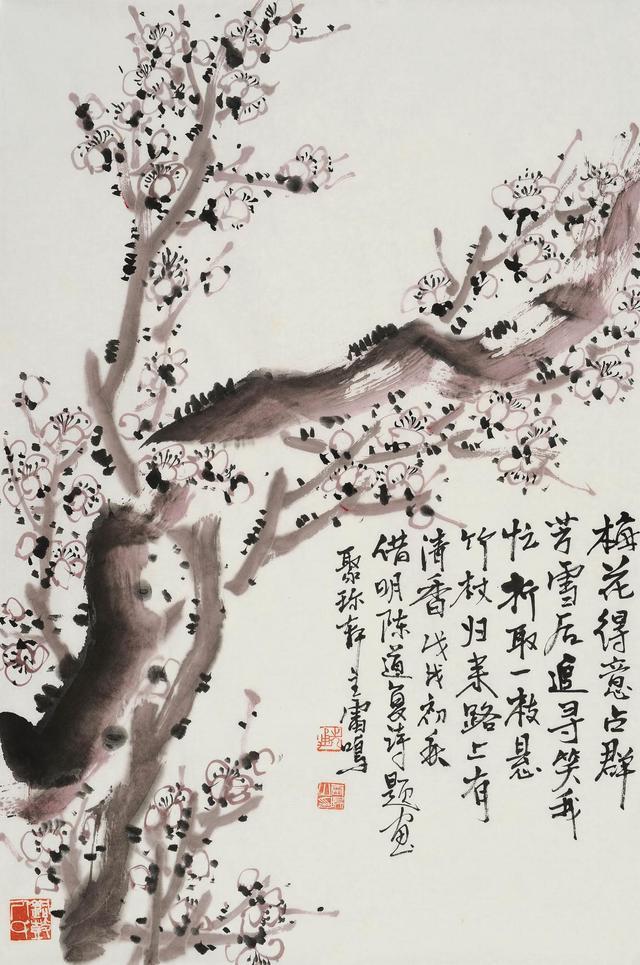 梅花得意占群
芳雪后追寻笑我
忙折取一枝悬
竹杖归来路上有
清香戊戌初秋
借明陈道复诗题画
聚珍轩主雷鸣